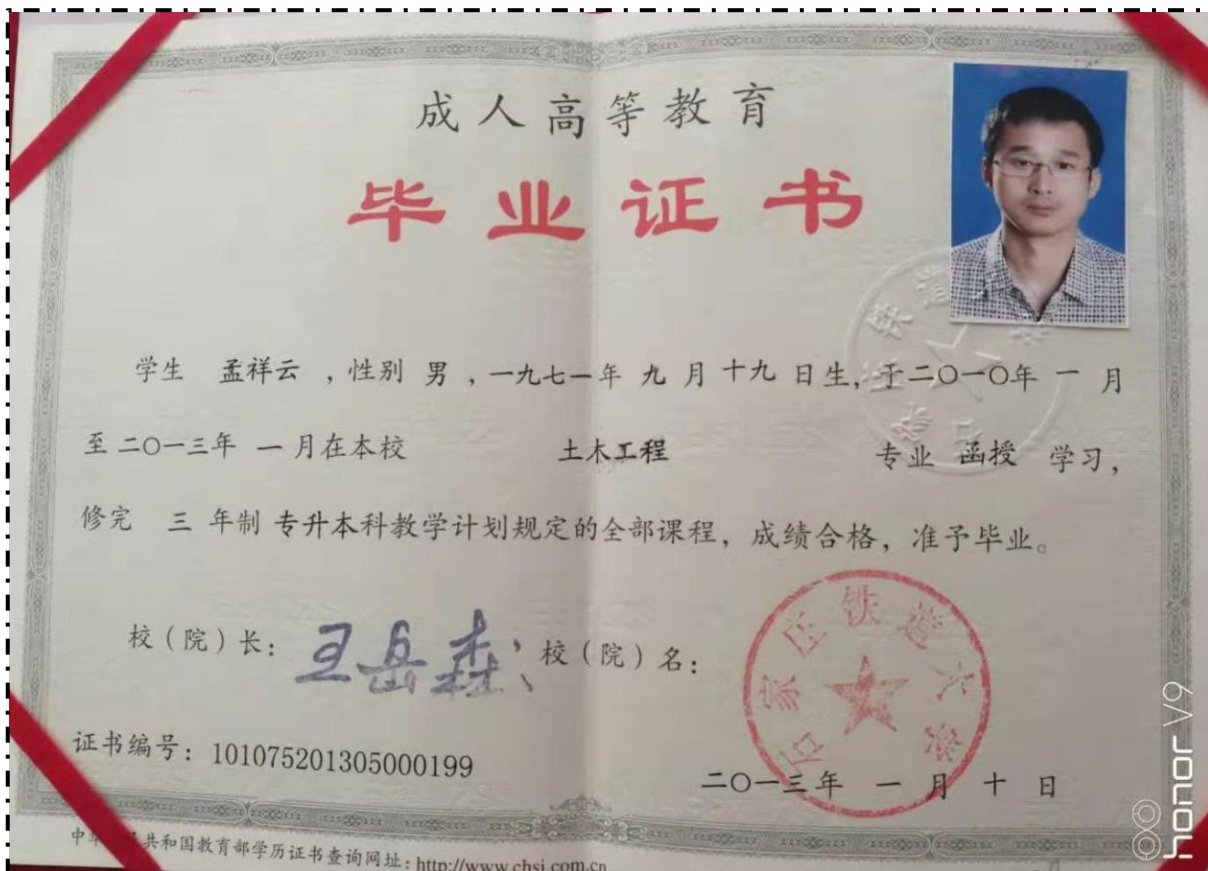 成人高等教育
毕业证书
学生 孟祥云 ，性别 男 ，一九七一年 九 月 十九 日生，于二〇一〇年 一 月
至二〇一三年 一月在本校 土木工程 专业 函授 学习，
修完 三 年制 专升本科教学计划规定的全部课程，成绩合格，准予毕业。
校（院）长： 王岳森 校（院）名：
石家庄铁道大学
证书编号：101075201305000199
二〇一三年 一 月 十 日
共和国教育部学历证书查询网址：http://www.chsi.com.cn
honor V9